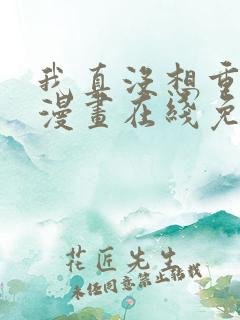 我真没想重
漫畫在綫免
花匠先生
未经同意禁止转载